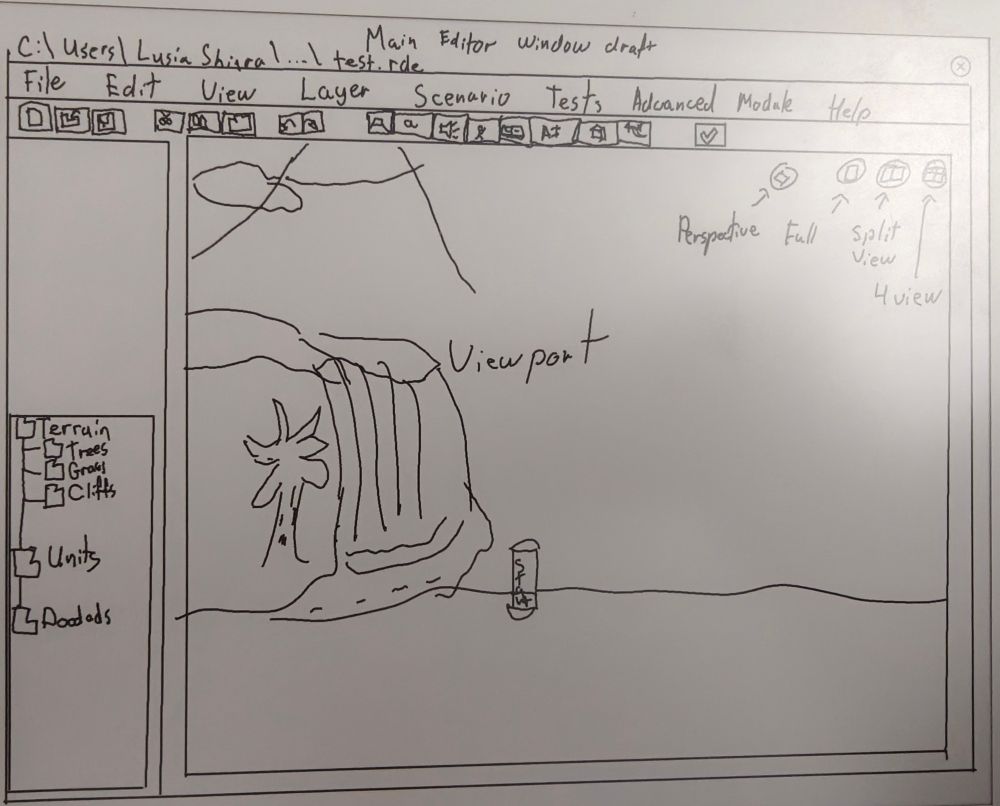 Main Editor window draft
C:\Users\Lusia Shiara\...\test.rde
File Edit View Layer Scenario Tests Advanced Module Help
Perspective Full Split View
4 view
Viewport
Terrain
Trees
Grass
Cliffs
Units
Doodads